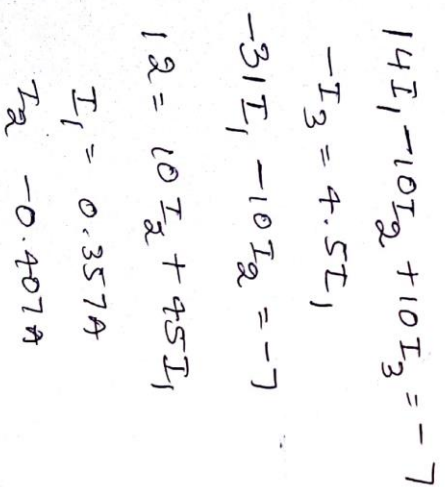 14I₁ -10I₂ +10I₃ = -7
-I₃ = 4.5I₁
-31I₁ -10I₂ = -7
12 = 10I₂ + 45I₁
I₁ = 0.357A
I₂ -0.407A